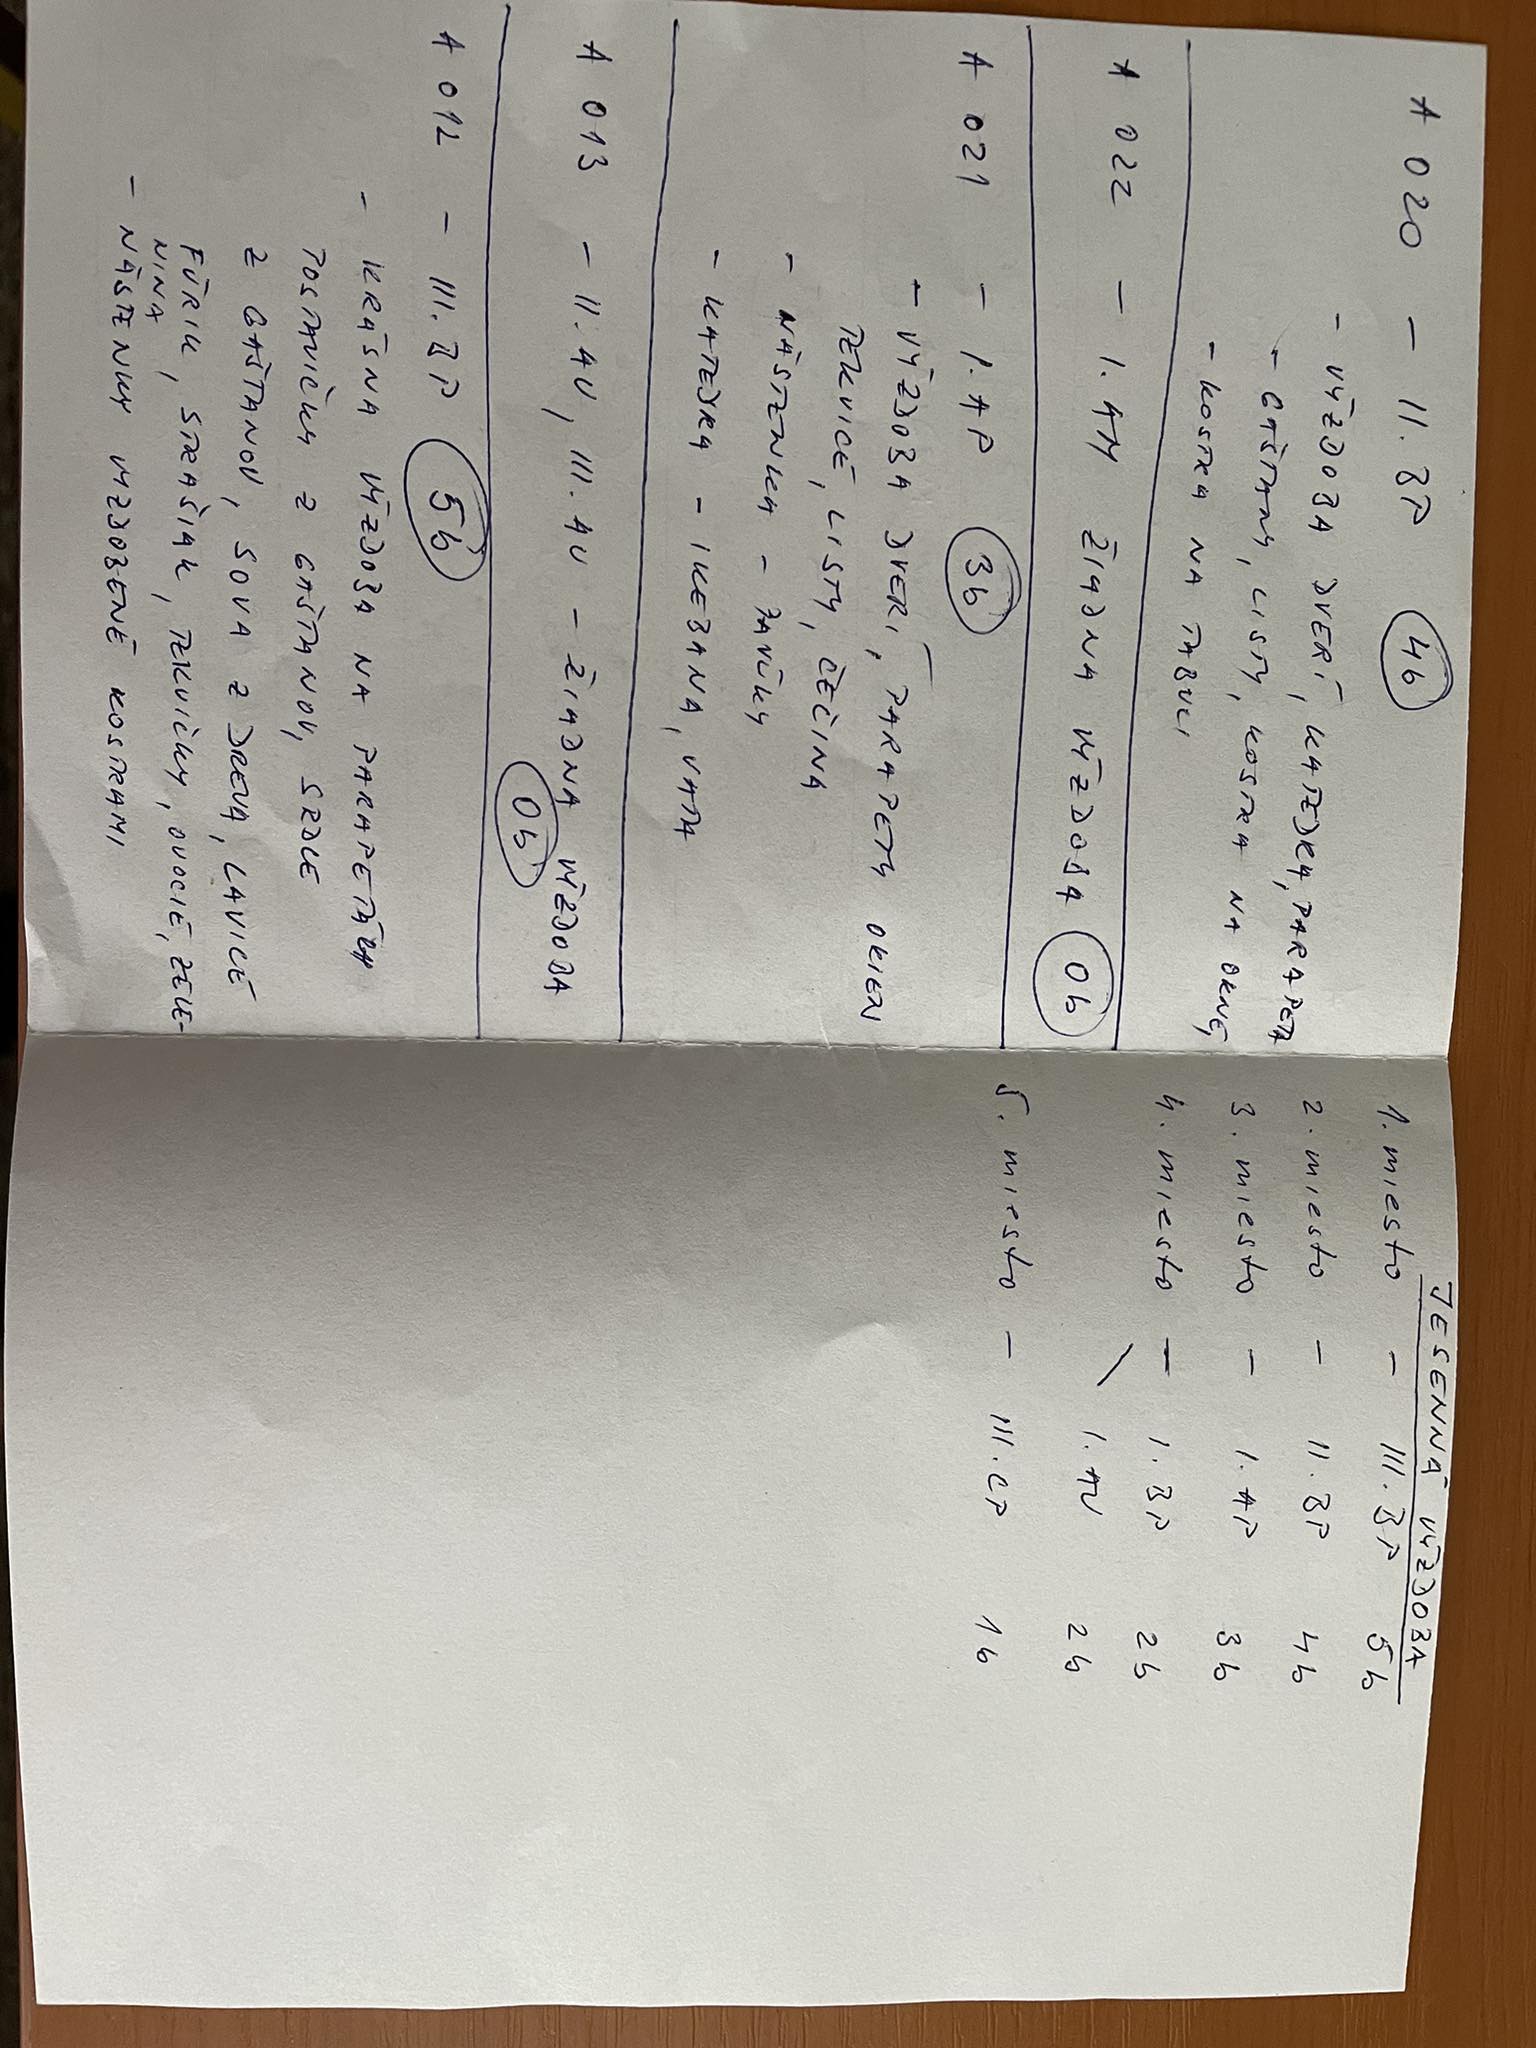 A 020 - II. BP 4b
- VÝZDOBA DVERÍ, KATEDRA, PARAPETA
- GAŠTANY, LISTY, KOSTRA NA OKNE,
- KOSTRA NA TABULI
A 022 - I. AM ŽIADNA VÝZDOBA 0b
A 021 - I. AP 3b
- VÝZDOBA DVERÍ, PARAPETY OKIEN
TEKVICE, LISTY, ČEČINA
- NÁSTENKA - PAVÚKY
- KATEDRA - IKEBANA, VATA
A 013 - II. AU, III. AU - ŽIADNA VÝZDOBA
0b
A 012 - III. BP 5b
- KRÁSNA VÝZDOBA NA PARAPETÁCH
POSTAVIČKY Z GAŠTANOV, SRDCE
Z GAŠTANOV, SOVA Z DREVA, LAVICE
FÚRIK, STRAŠIAK, TEKVIČKY, OVOCIE, ZELE-
NINA
- NÁSTENKY VYZDOBENÉ KOSTRAMI
JESENNÁ VÝZDOBA
1. miesto - III. BP 5b
2. miesto - II. BP 4b
3. miesto - I. AP 3b
4. miesto - I. BP 2b
\ I. AU 2b
5. miesto - III. CP 1b